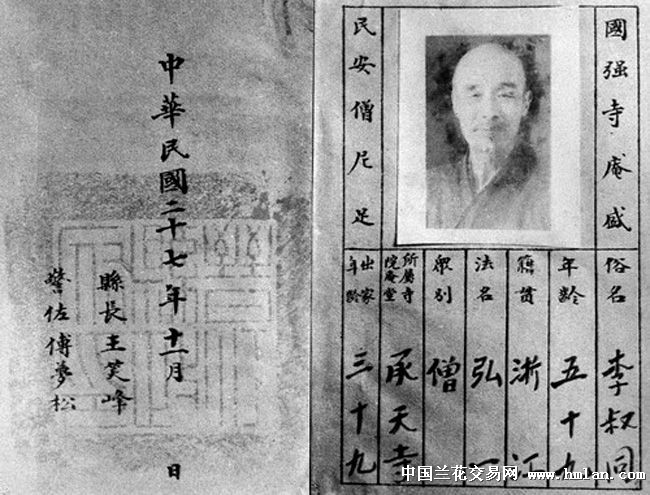 國强寺庵盛
民安僧尼足
俗名 李叔同
年龄 五十九
籍貫 浙江
法名 弘一
眾別 僧
所屬寺院庵堂 承天寺
出家年齡 三十九
中華民國二十七年十一月 日
縣長王笑峰
警佐傅夢松
中国兰花交易网 www.hmlan.com